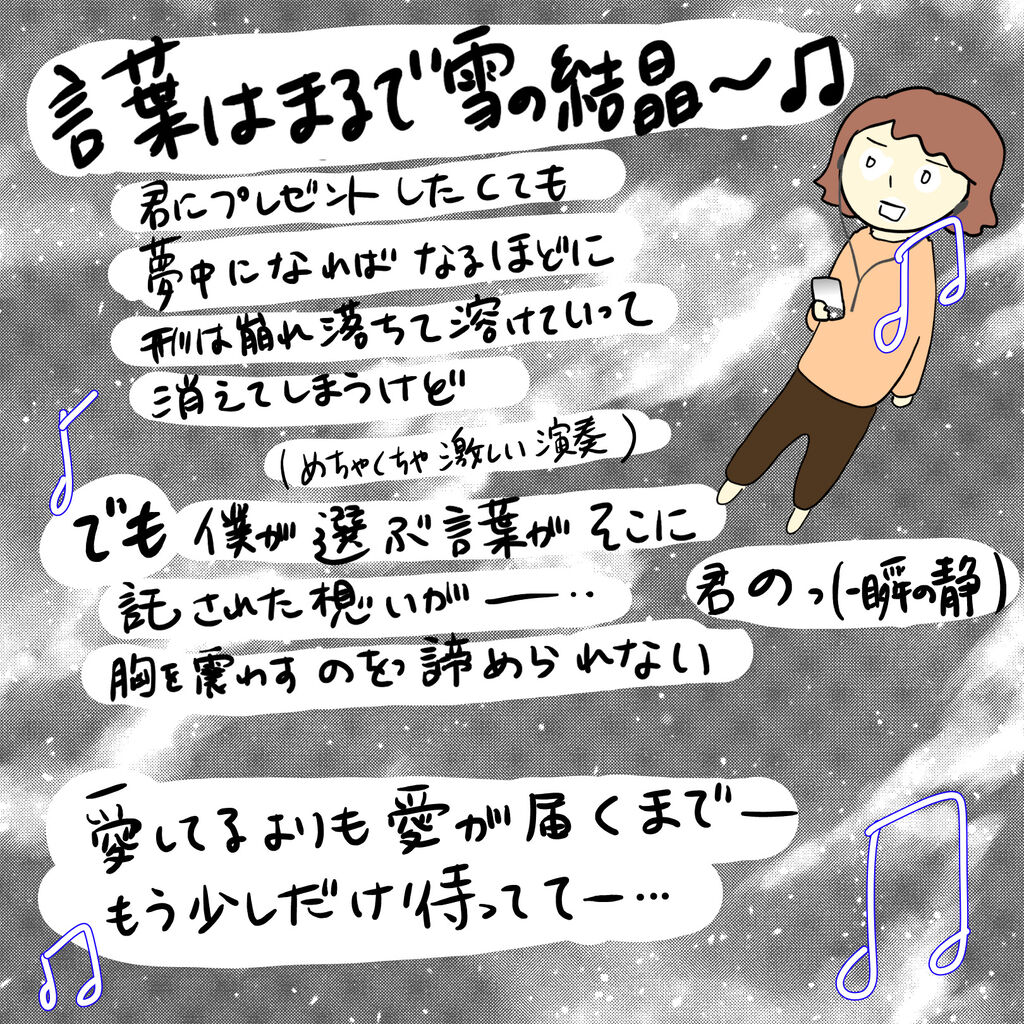 言葉はまるで雪の結晶〜♫
君にプレゼントしたくても
夢中になれば なるほどに
形は崩れ落ちて溶けていって
消えてしまうけど
(めちゃくちゃ激しい演奏)
でも 僕が選ぶ言葉が そこに
託された想いがー‥
君のっ(一瞬の静)
胸を震わすのをっ諦められない
愛してるよりも愛が届くまでー
もう少しだけ待っててー…